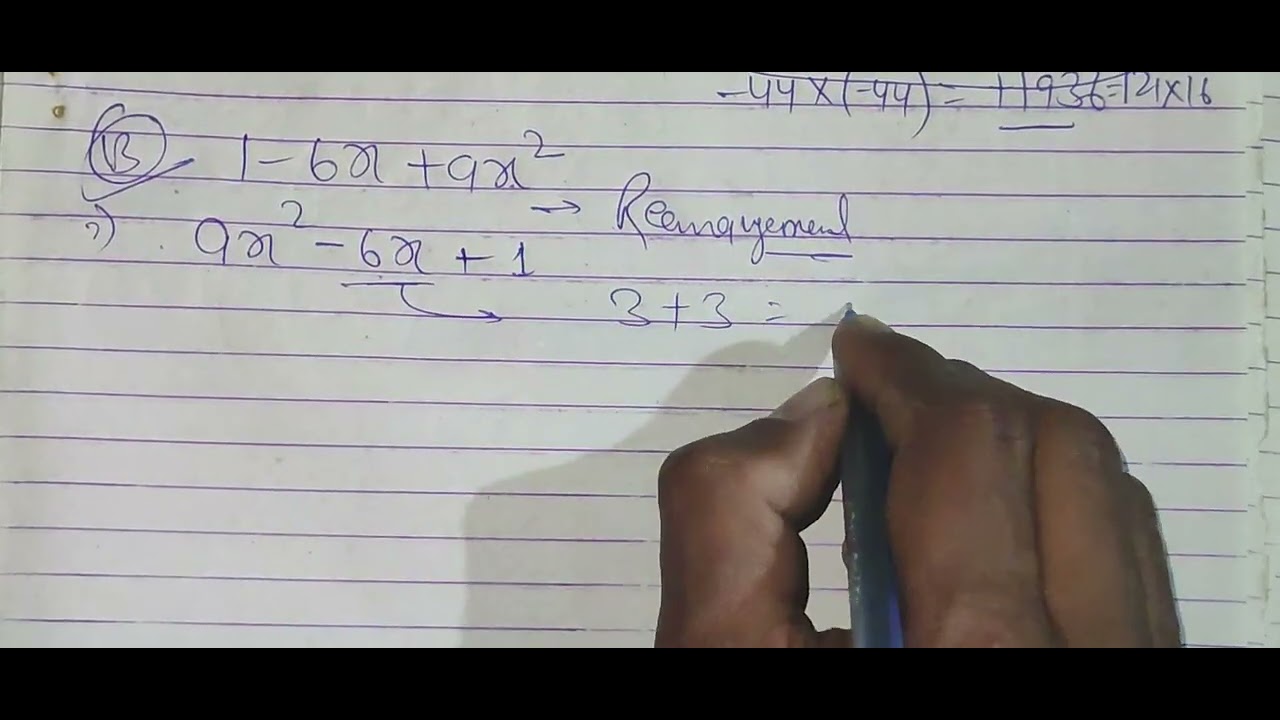 -44 × (-44) = +1936 = 121×16
(B) 1 - 6x + 9x²
→ Rearrangement
⇒) 9x² - 6x + 1
→ 3 + 3 =